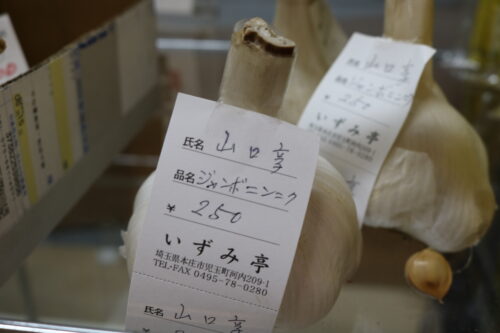 氏名 山口 亨
品名 ジャンボニンニク
¥ 250
いずみ亭
埼玉県本庄市児玉町河内209-1
TEL・FAX 0495-78-0280
氏名 山口
氏名 山口 亨
品名 ジャンボニンニク
¥ 250
いずみ亭